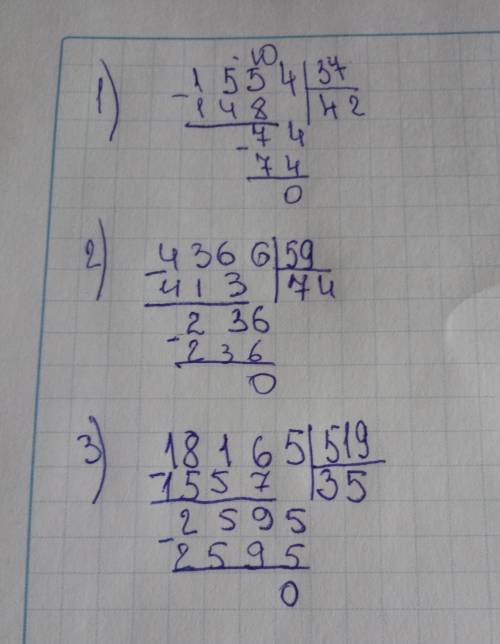 1) · 10
1 5 5 4 | 37
- 1 4 8 | 42
7 4
- 7 4
0
2) 4 3 6 6 | 59
- 4 1 3 | 74
2 3 6
- 2 3 6
0
3) 1 8 1 6 5 | 519
- 1 5 5 7 | 35
2 5 9 5
- 2 5 9 5
0